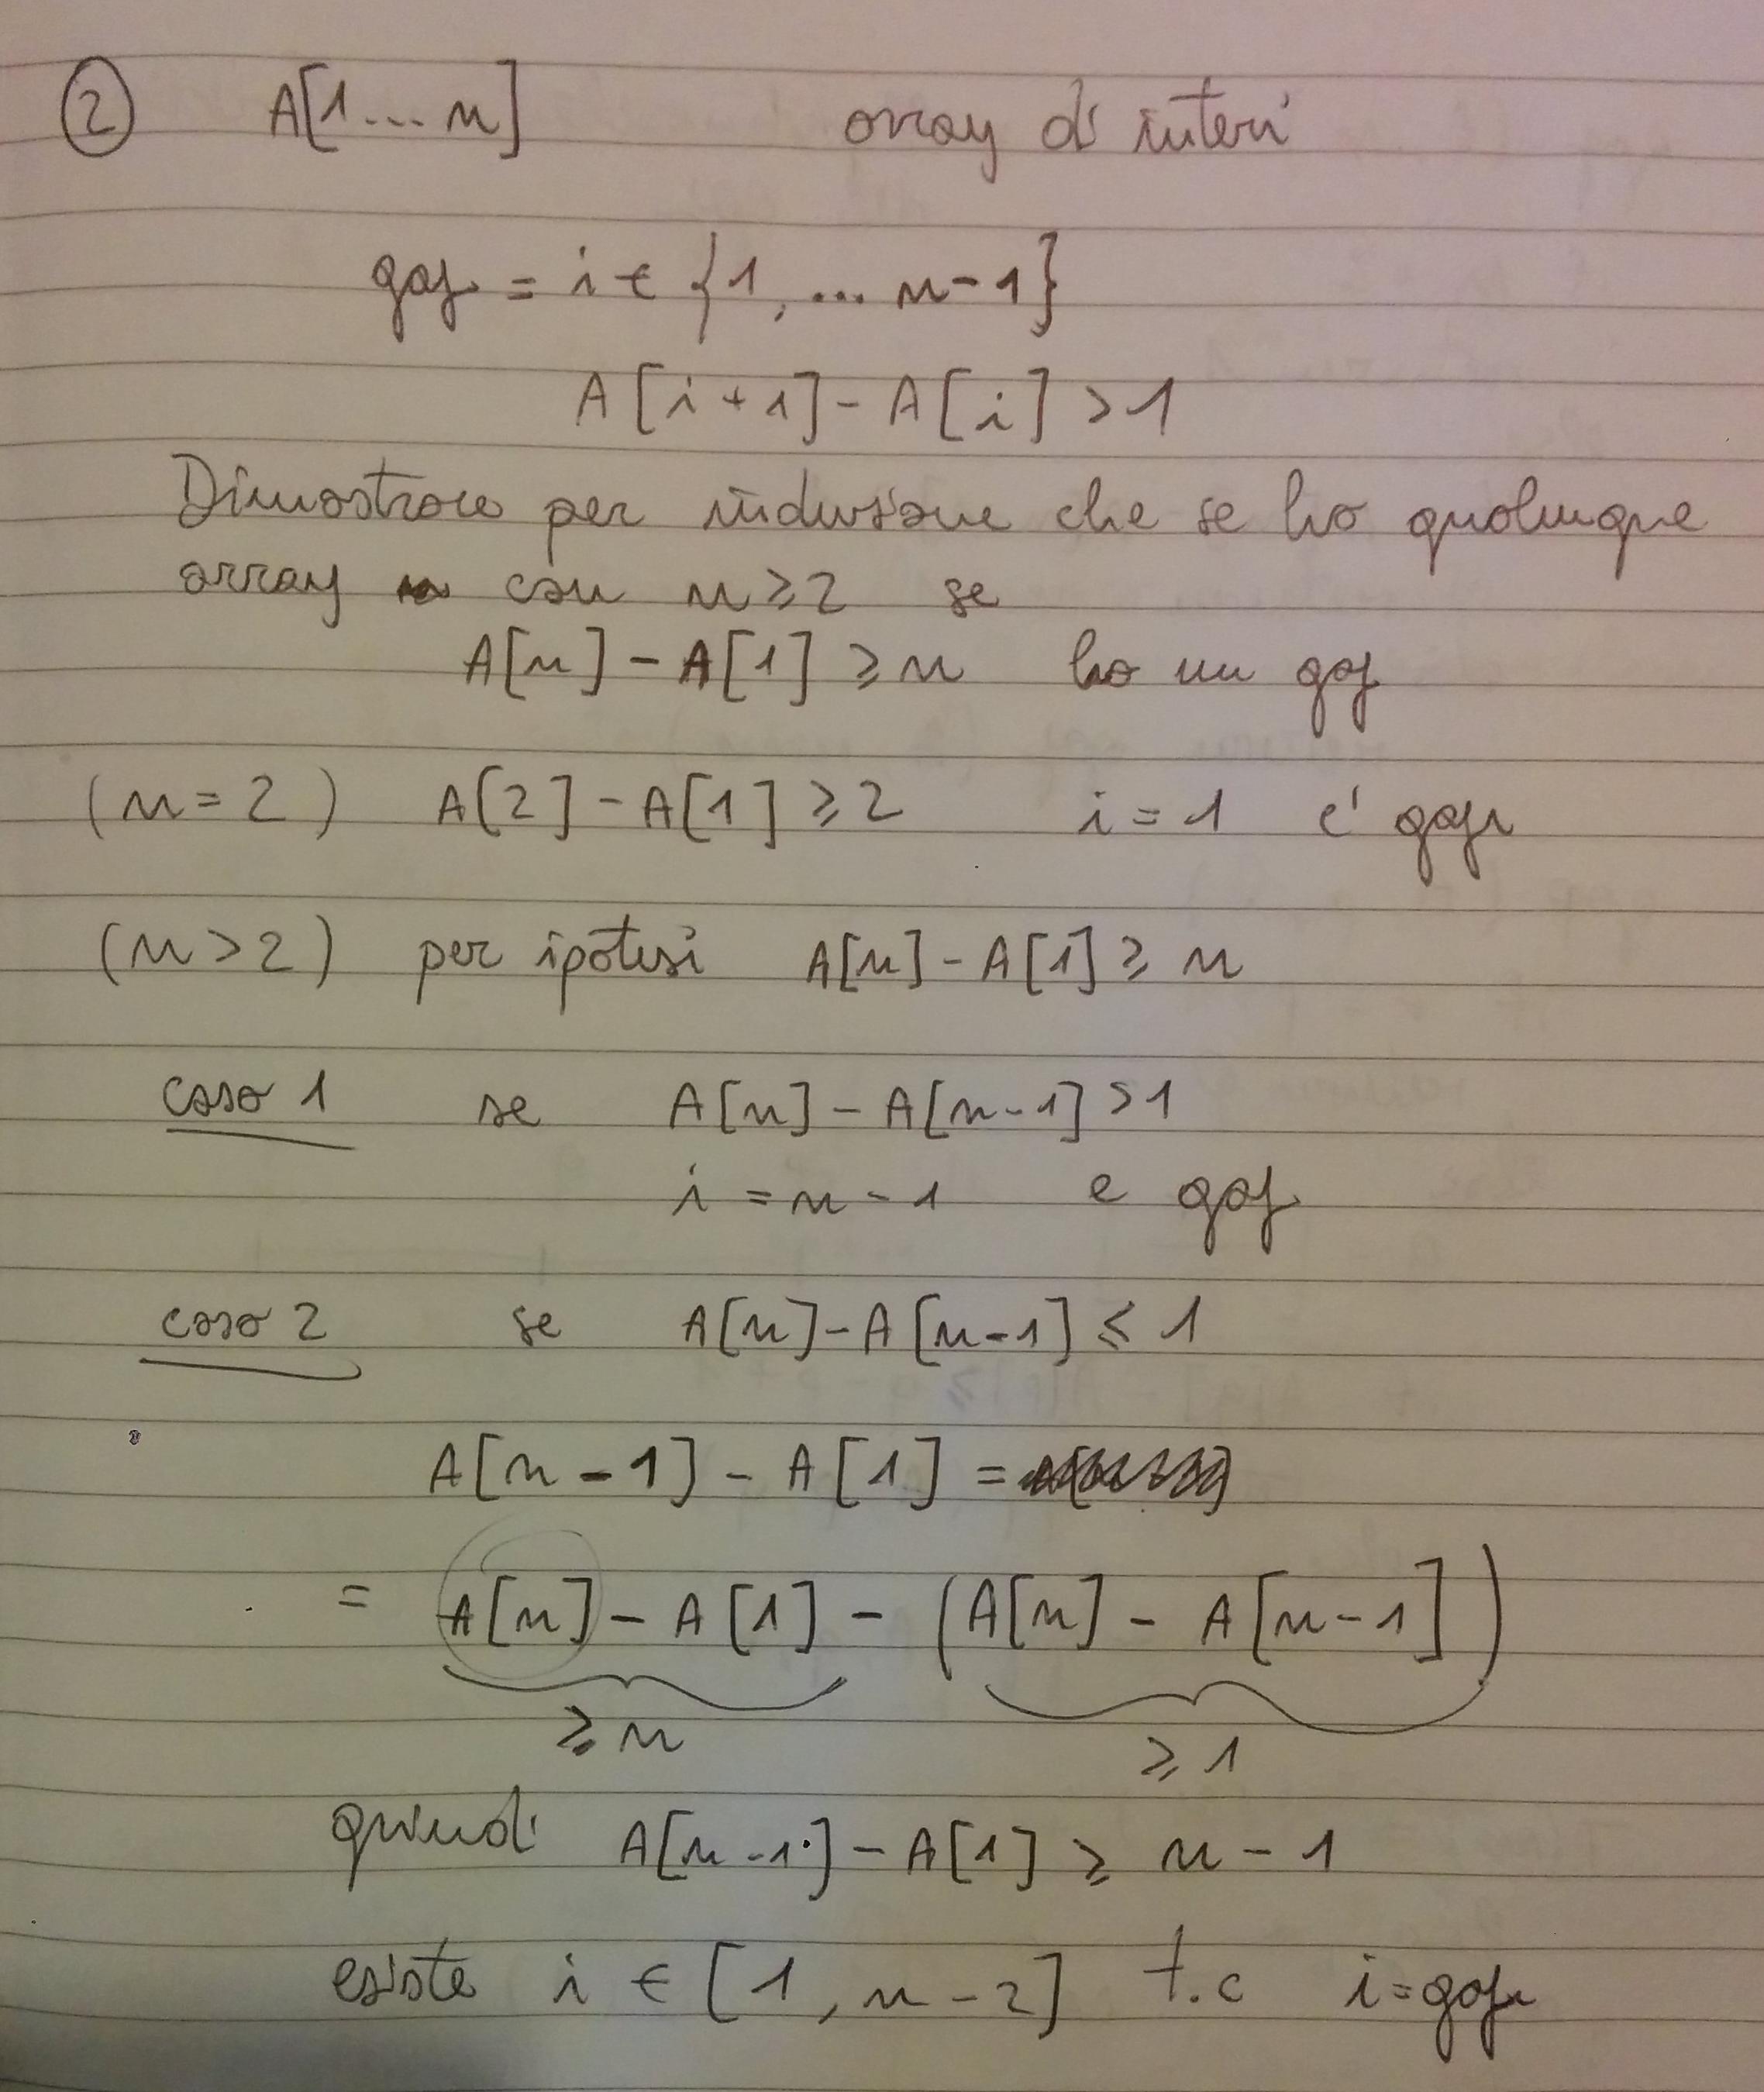 ② A[1...n] array di interi
gap = i ∈ {1, ... n-1}
A[i+1] - A[i] > 1
Dimostrare per induzione che se ho qualunque
array con n ≥ 2 se
A[n] - A[1] ≥ n ho un gap
(n = 2) A[2] - A[1] ≥ 2 i = 1 e' gap
(n > 2) per ipotesi A[n] - A[1] ≥ n
caso 1 se A[n] - A[n-1] > 1
i = n - 1 e gap
caso 2 se A[n] - A[n-1] ≤ 1
A[n-1] - A[1] =
= A[n] - A[1] - (A[n] - A[n-1])
≥ n ≥ 1
quindi A[n-1] - A[1] ≥ n - 1
esiste i ∈ [1, n-2] t.c i = gap